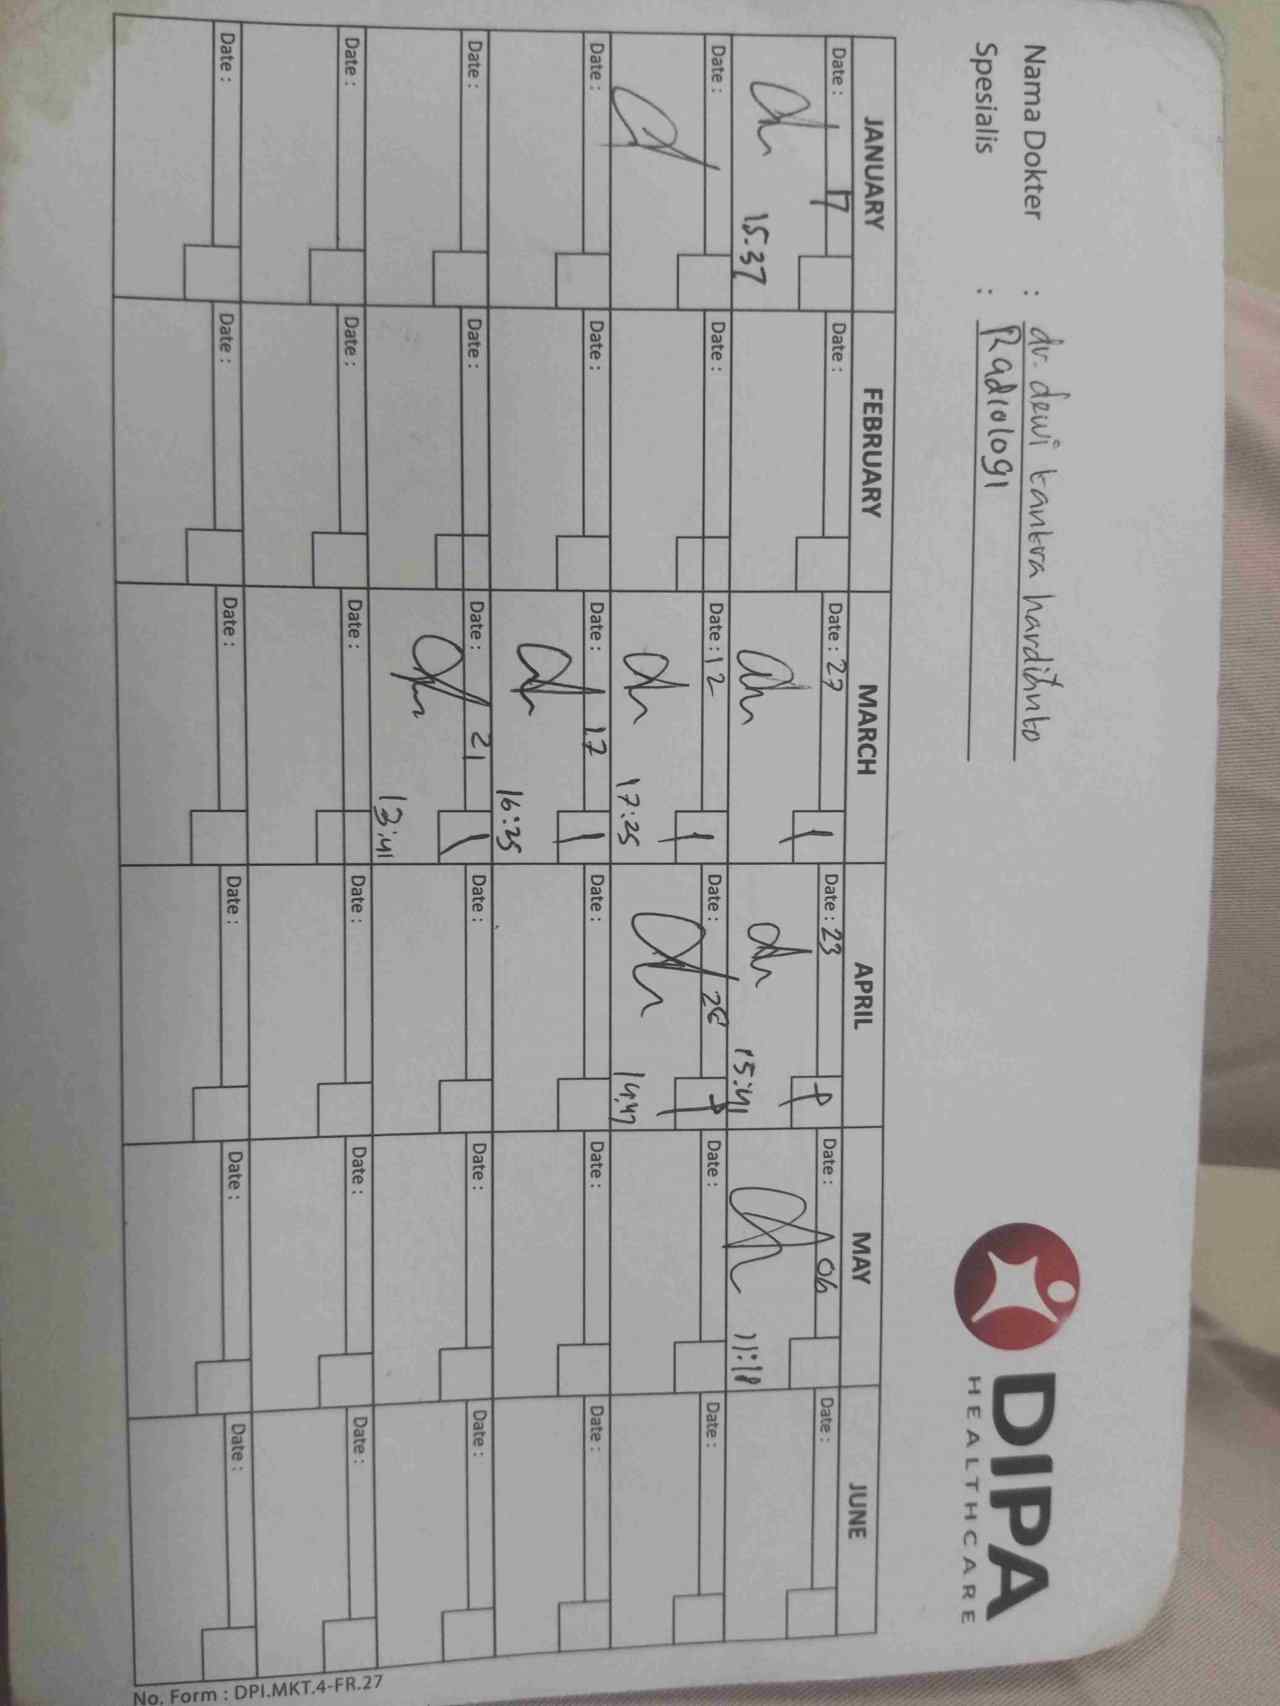 Nama Dokter : dr. dewi tantra hardiyanto
Spesialis : Radiologi
DIPA
HEALTHCARE
JANUARY FEBRUARY MARCH APRIL MAY JUNE
Date : 17 Date : Date : 27 Date : 23 Date : 06 Date :
15.37 15:41 11:18
Date : Date : Date : 12 Date : 28 Date : Date :
17:25 14:47
Date : Date : Date : 17 Date : Date : Date :
16:35
Date : Date : Date : 21 Date : Date : Date :
13:41
Date : Date : Date : Date : Date : Date :
Date : Date : Date : Date : Date : Date :
No. Form : DPI.MKT.4-FR.27